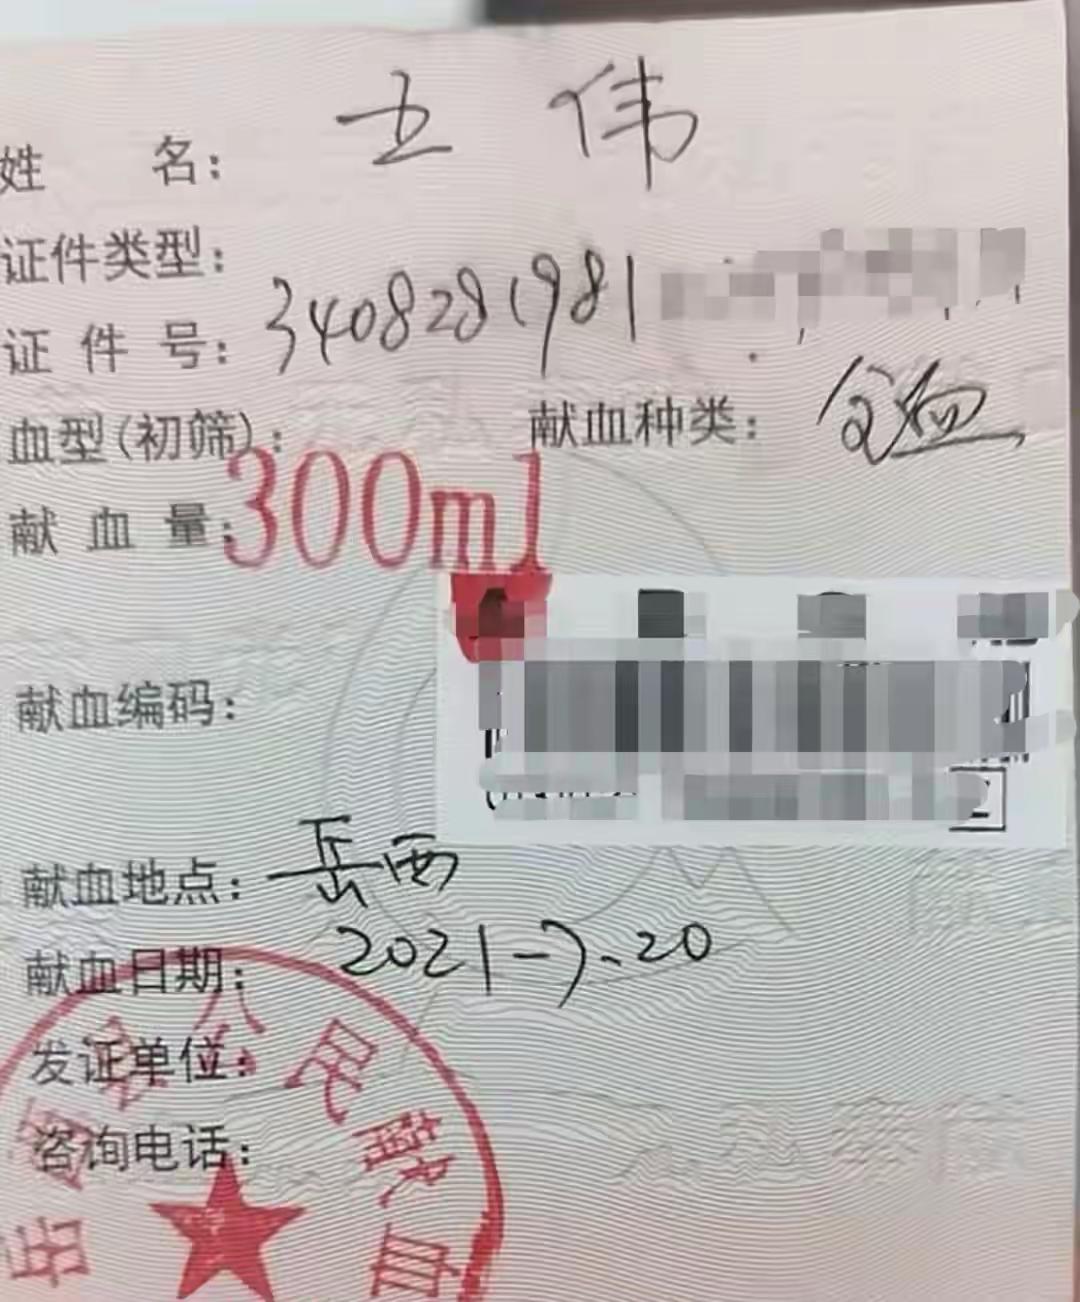 姓 名： 王伟
证件类型：
证件号： 3408281981
血型(初筛)： 献血种类： 全血
献血量： 300ml
献血编码：
献血地点： 岳西
献血日期： 2021-7.20
发证单位：
咨询电话：
岳西县公民献血